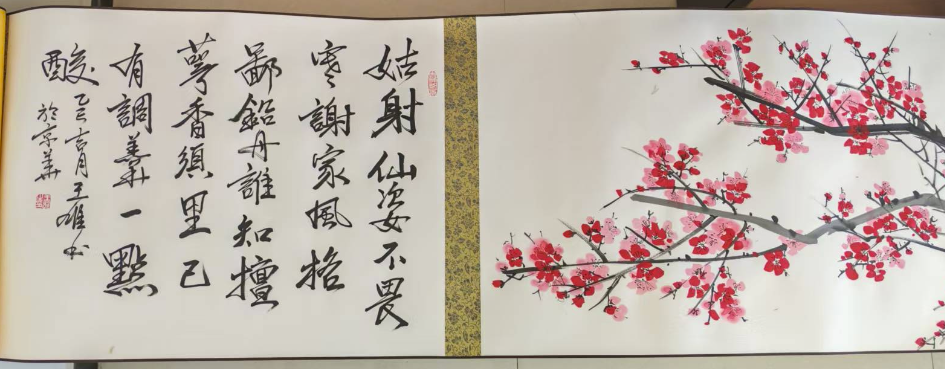 姑射仙姿不畏
寒謝家風格
鄙鉛丹誰知檀
萼香須里已
有調羹一點
酸
乙巳吉月王雄书
於京華